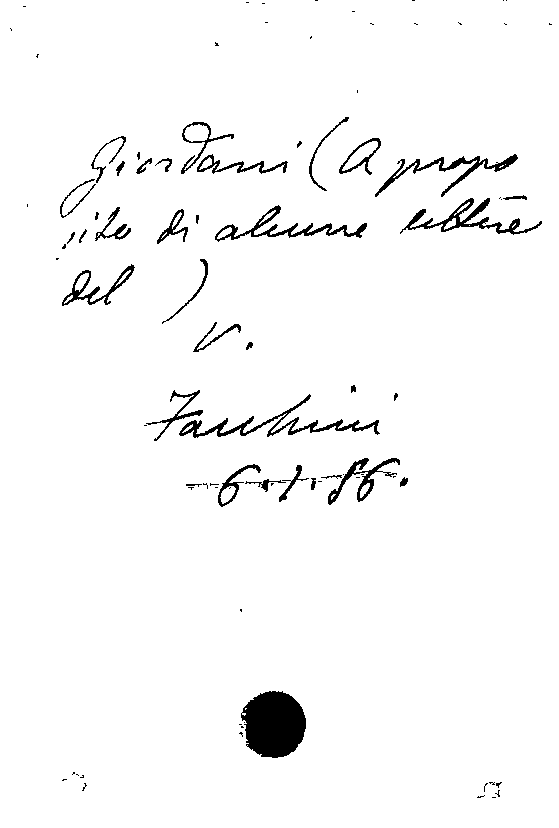 Giordani (A propo
sito di alcune lettere
del )
V.
Facchini
6.1.86.